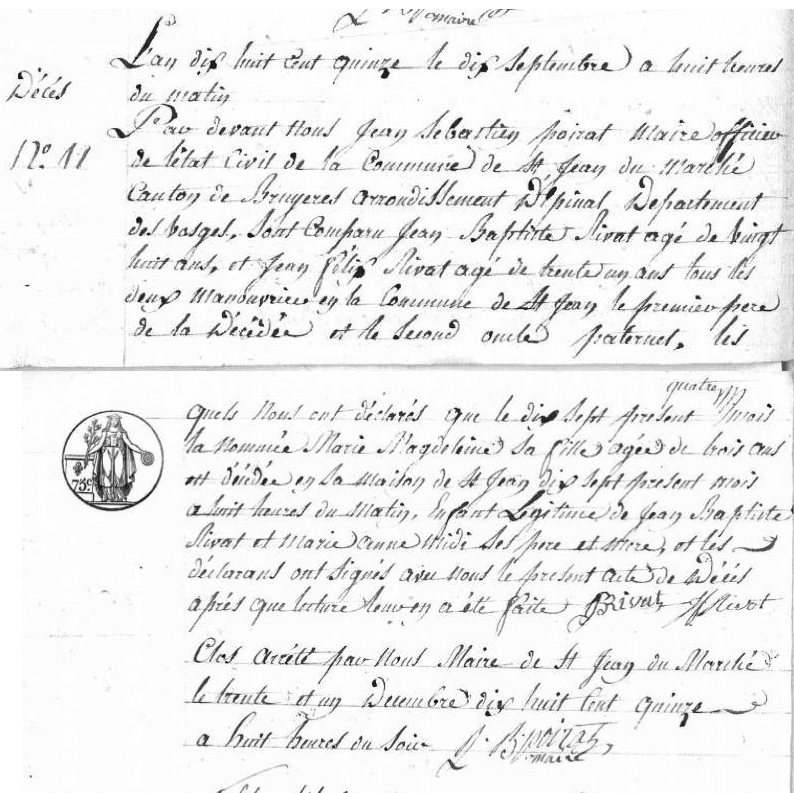 maire
L'an dix huit cent quinze le dix Septembre a huit heures
Décés
du matin
Par devant Nous Jean Sebastien poirat Maire officier
N.º 11
de l'état Civil de la Commune de St Jean du Marché
Canton de Bruyeres arrondissement D'Epinal, Departement
des vosges, Sont Comparu Jean Baptiste Rivat agé de vingt
huit ans, et Jean Félix Rivat agé de trente un ans tous les
deux Manouvrier en la Commune de St Jean le premier pere
de la Décédée et le Second oncle paternel, les
quatre
quels Nous ont déclarés que le dix Sept présent mois
la Nommée Marie Magdeleine Sa fille agée de trois ans
est décédée en Sa Maison de St Jean dix Sept présent mois
75c
a huit heures du Matin, Enfant Légitime de Jean Baptiste
Rivat et Marie anne Midi Ses pere et Mere, et les
déclarans ont Signés avec Nous le présent acte de Décés
aprés que lecture leur en a été faite JBRivat JfRivat
Clos arrété par Nous Maire de St Jean du Marché
le trente et un Decembre dix huit Cent quinze
a huit heures du Soir poirat,
maire